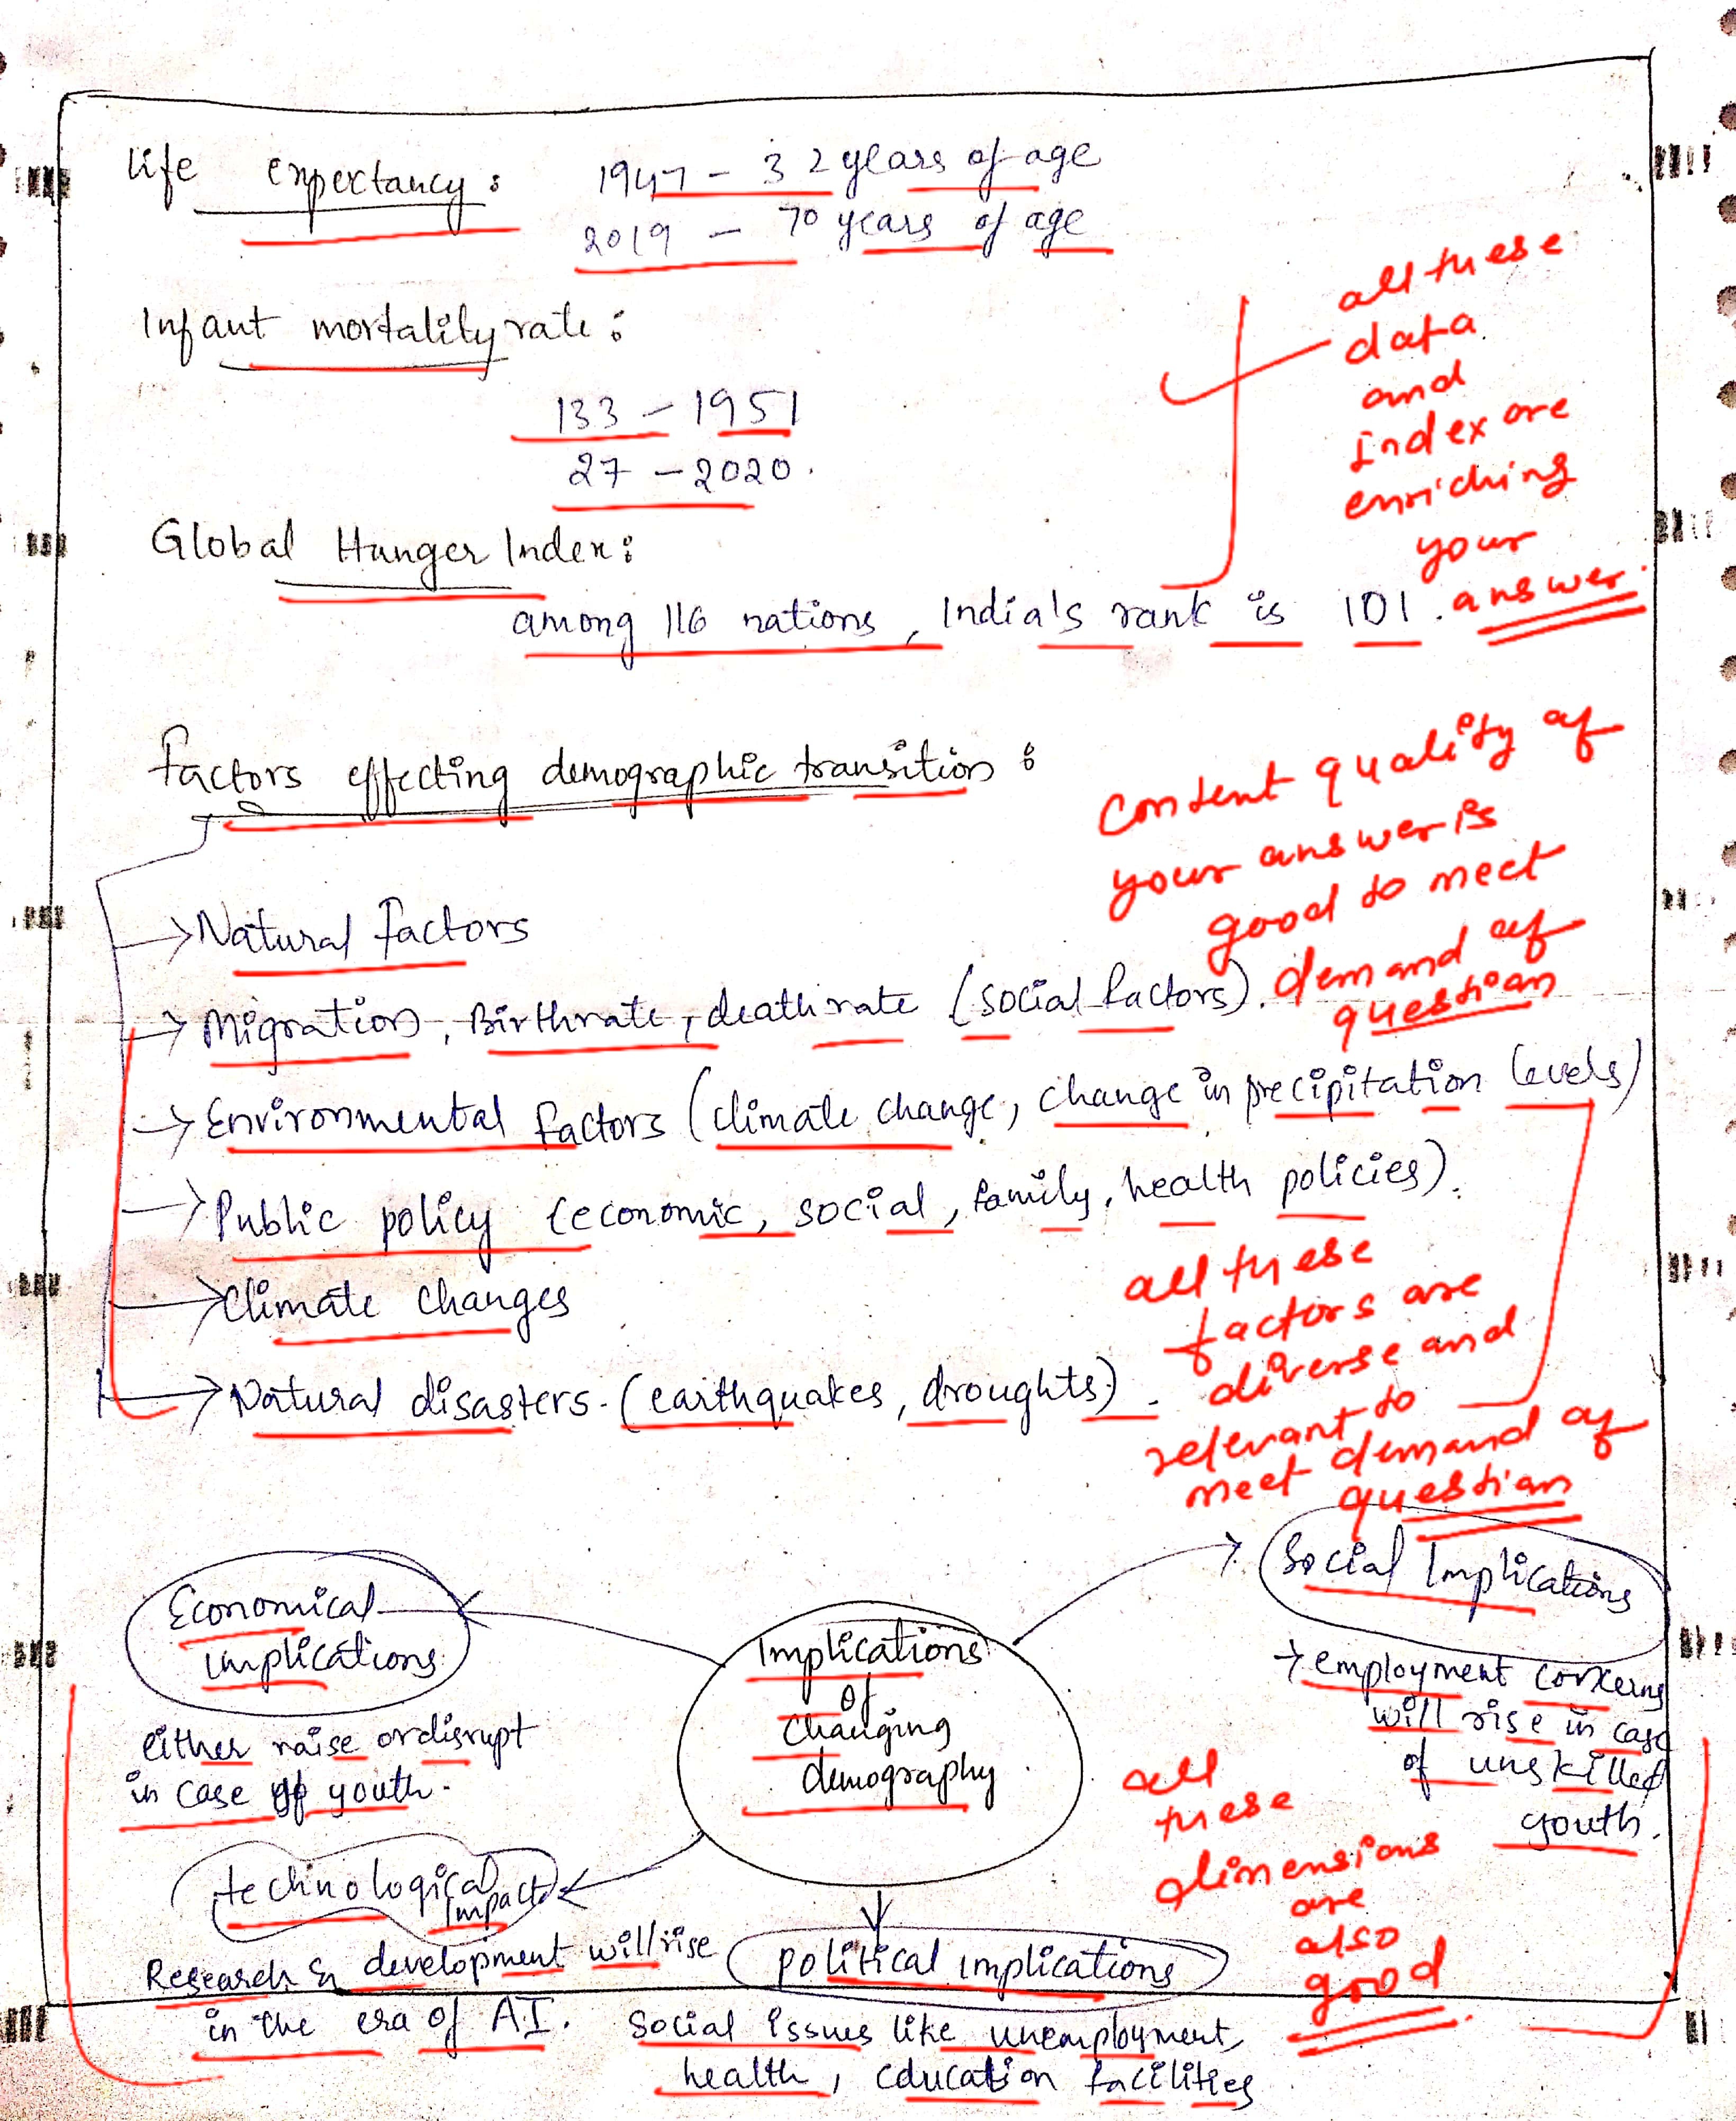 life expectancy: 1947 - 32 years of age
2019 - 70 years of age
Infant mortality rate:
133 - 1951
27 - 2020.
Global Hunger Index:
among 116 nations, India's rank is 101.
all these
data
and
index are
enriching
your
answer.
Factors effecting demographic transition:
Content quality of
your answer is
good to meet
demand of
question
→ Natural factors
→ Migration, Birthrate, death rate (social factors).
→ Environmental factors (climate change, change in precipitation levels)
→ Public policy (economic, social, family, health policies).
→ Climate changes
→ Natural disasters. (earthquakes, droughts).
all these
factors are
diverse and
relevant to
meet demand of
question
Implications
of
changing
demography
Economical
implications
either raise or disrupt
in case of youth.
Social Implications
→ employment concerns
will rise in case
of unskilled
youth.
technological
impact
Research & development will rise
in the era of AI.
political implications
Social issues like unemployment,
health, education facilities
all
these
dimensions
are
also
good